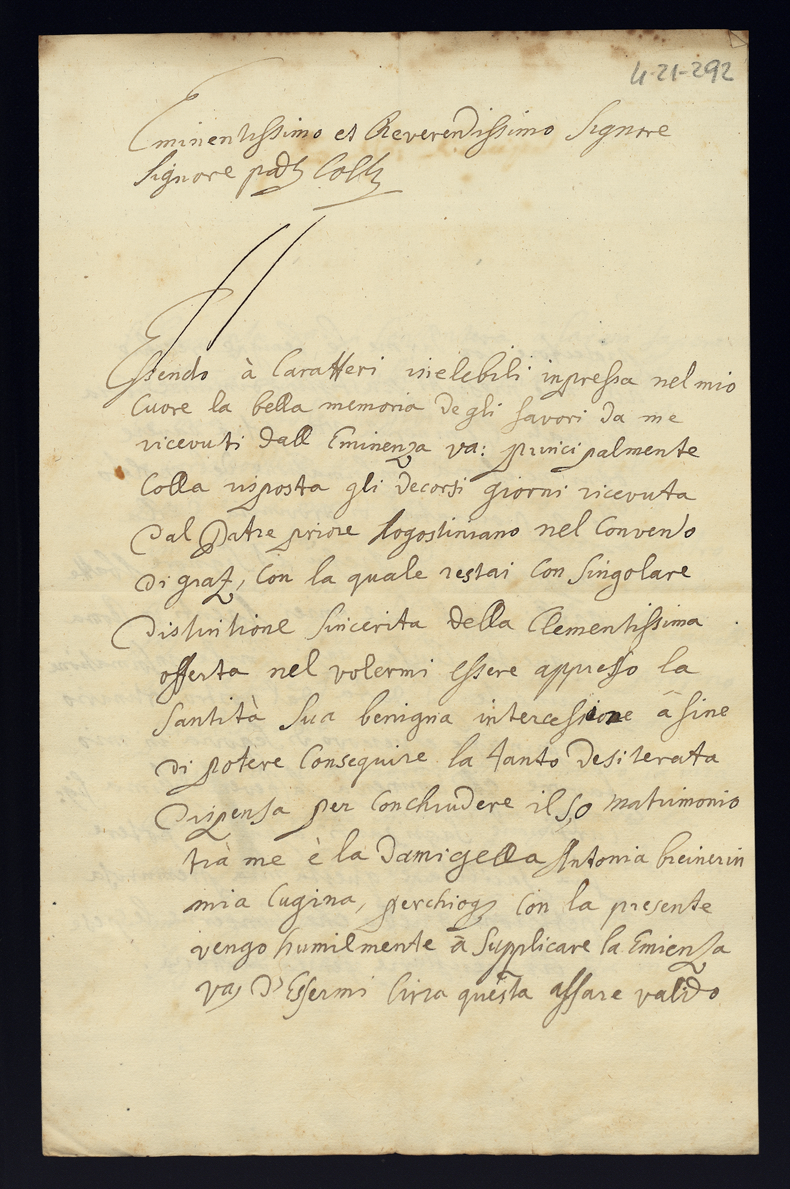 4-21-292
Eminentissimo et Reverendissimo Signore
Signore Coll
Essendo à Caratteri inelebili inpressa nel mio
Cuore la bella memoria degli favori da me
ricevuti dall Eminenza va: principalmente
Colla risposta gli decorsi giorni ricevuta
Dal Patre priore Aogostiniano nel Convento
Di graz, Con la quale restai Con Singolare
Distintione Sincerita della Clementissima
offerta nel volermi Essere appresso la
Santità Sua benigna intercessione à fine
di potere Conseguire la tanto Desiterata
Dispensa per Conchiudere il matrimonio
trà me è la Damigella Antonia breinerin
mia Cugina, perchio Con la presente
vengo humilmente à Supplicare la Emienza
va D'Essermi Circa questa affare valido